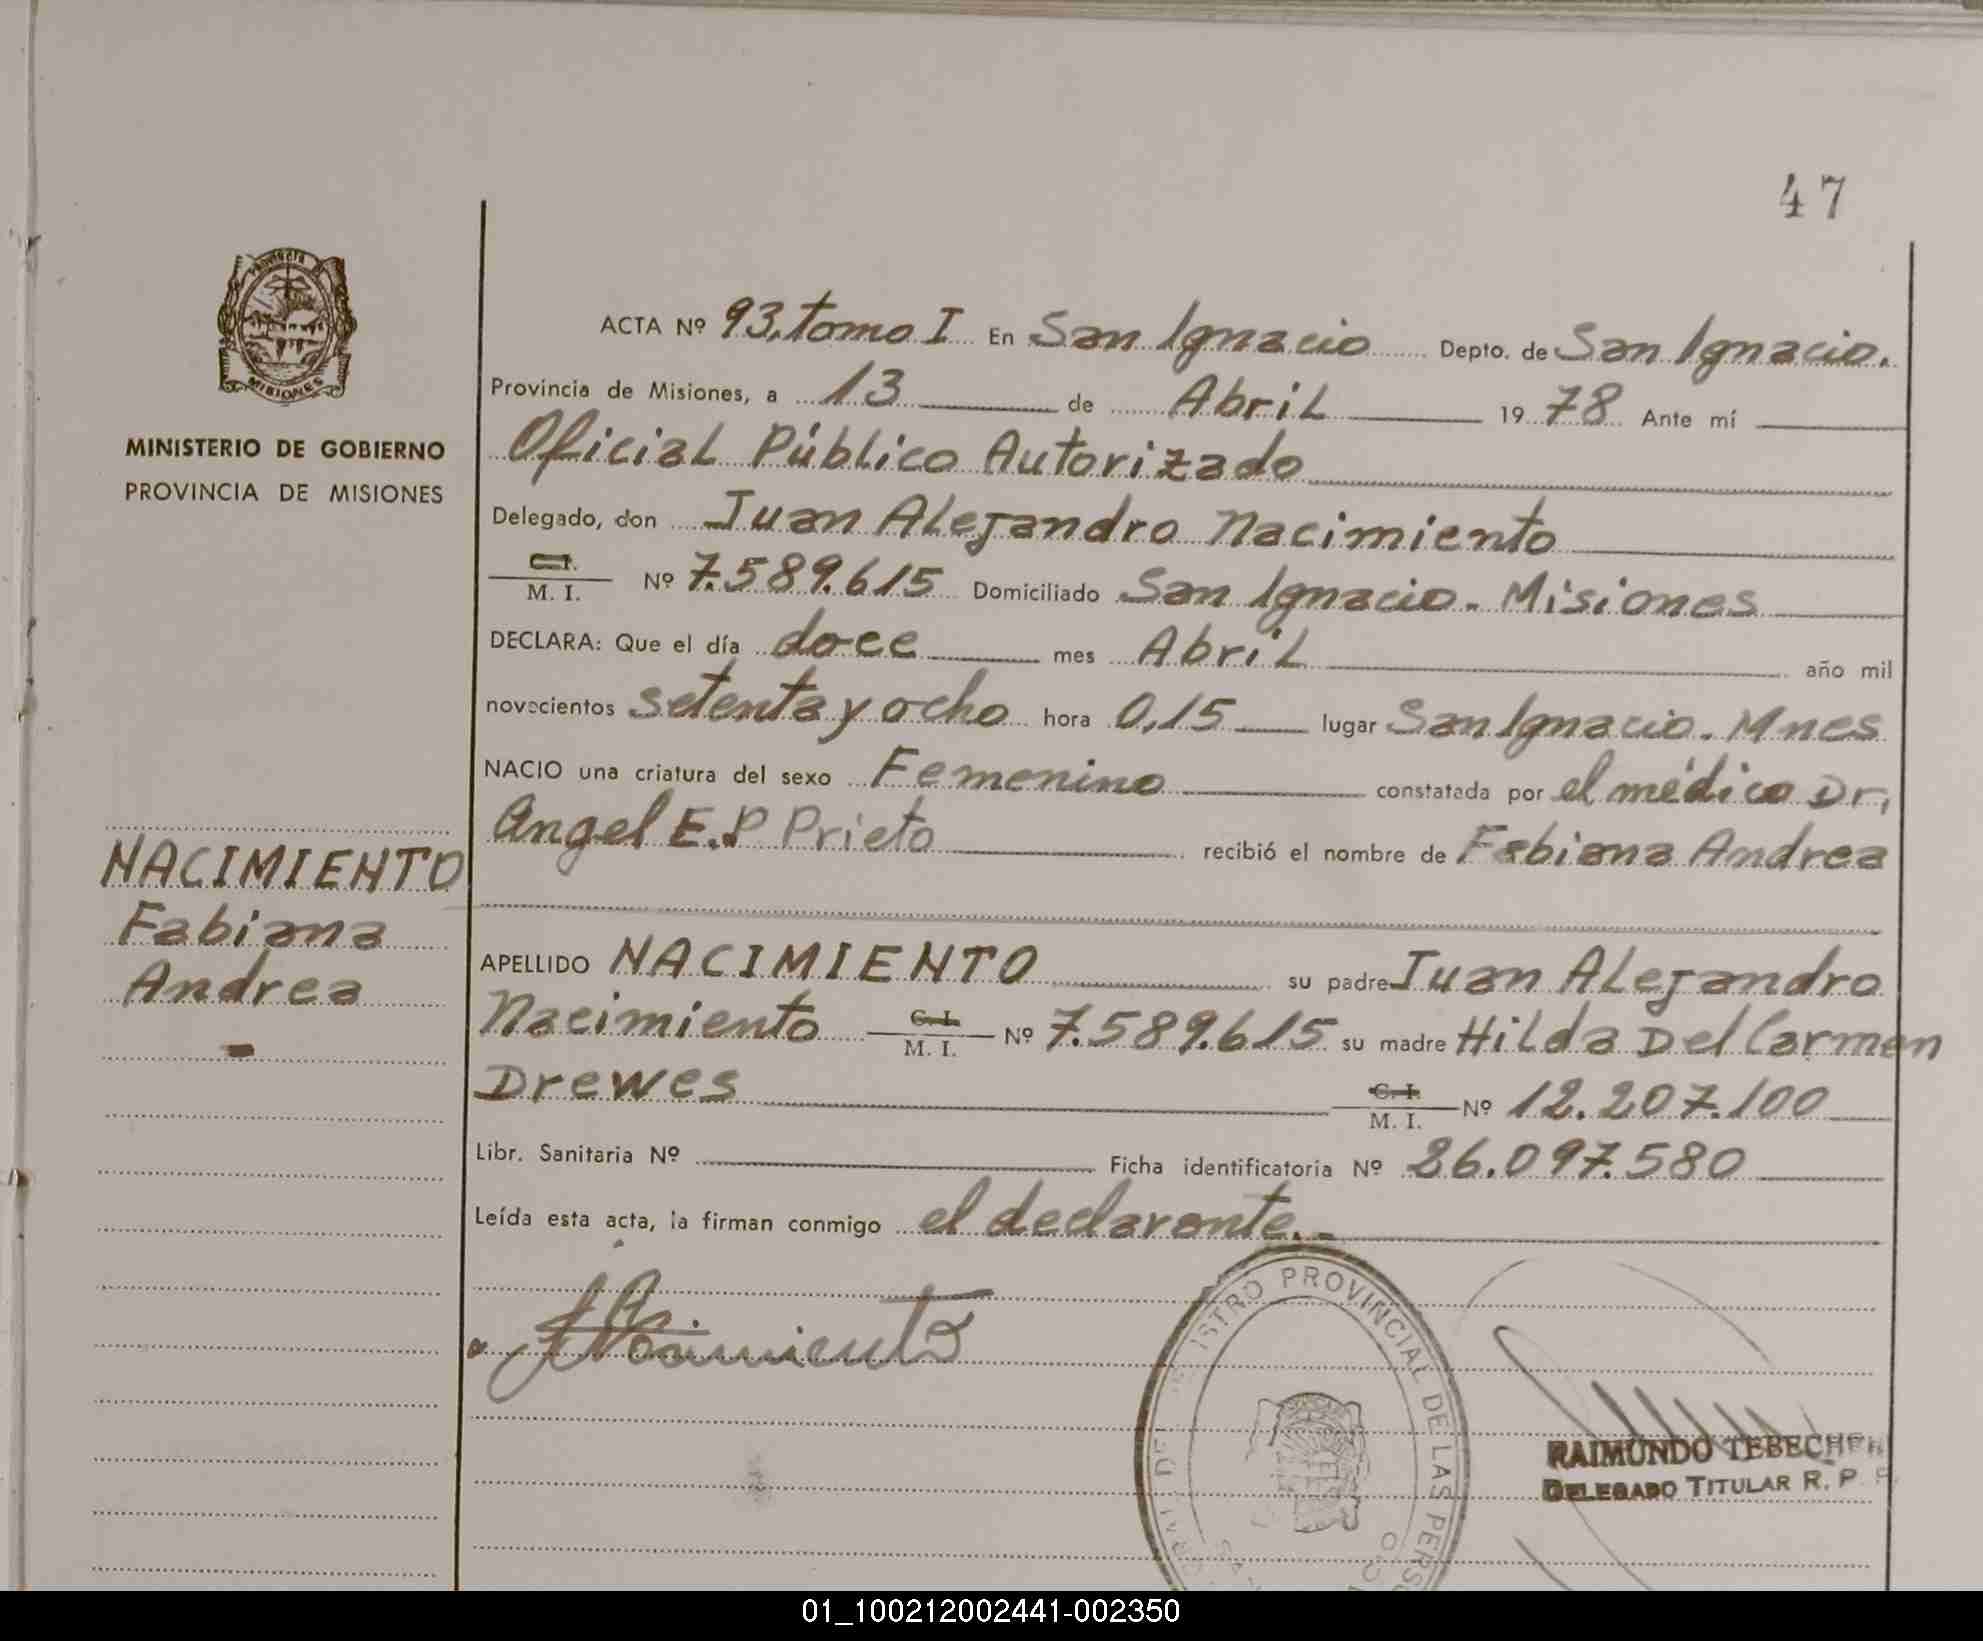 47
PROVINCIA DE
MISIONES
MINISTERIO DE GOBIERNO
PROVINCIA DE MISIONES
NACIMIENTO
Fabiana
Andrea
ACTA Nº 93, tomo I En San Ignacio Depto. de San Ignacio.
Provincia de Misiones, a 13 de Abril 1978 Ante mí
Oficial Público Autorizado
Delegado, don Juan Alejandro Nacimiento
C.I. / M. I. Nº 7.589.615 Domiciliado San Ignacio - Misiones
DECLARA: Que el día doce mes Abril año mil
novecientos setenta y ocho hora 0,15 lugar San Ignacio. Mnes
NACIO una criatura del sexo Femenino constatada por el médico Dr,
Angel E.P Prieto recibió el nombre de Fabiana Andrea
APELLIDO NACIMIENTO su padre Juan Alejandro
Nacimiento C.I. / M. I. Nº 7.589.615 su madre Hilda Del Carmen
Drewes C.I. / M. I. Nº 12.207.100
Libr. Sanitaria Nº Ficha identificatoria Nº 26.097.580
Leída esta acta, la firman conmigo el declarante.-
Nacimiento
ISTRO PROVINCIAL DE LAS PERSO
RAIMUNDO TEBECHER
DELEGADO TITULAR R. P.
01_100212002441-002350